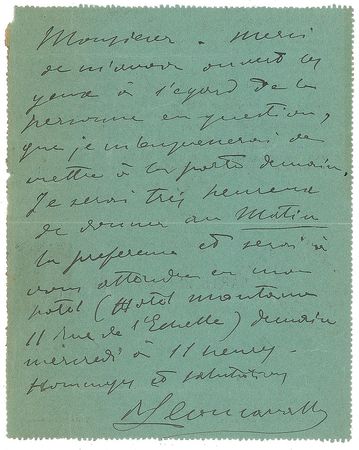 Monsieur. Merci
de m'avoir ouvert les
yeux à l'egard de la
personne en question,
que je m'empresserai de
mettre à la porte demain.
Je serai très heureux
de donner au Matin
la preference et serai à
vous attendre en mon
hotel (Hotel Montana
11 rue de l'Echelle) demain
mercredi à 11 heures -
Hommages et salutations
RLeoncavallo